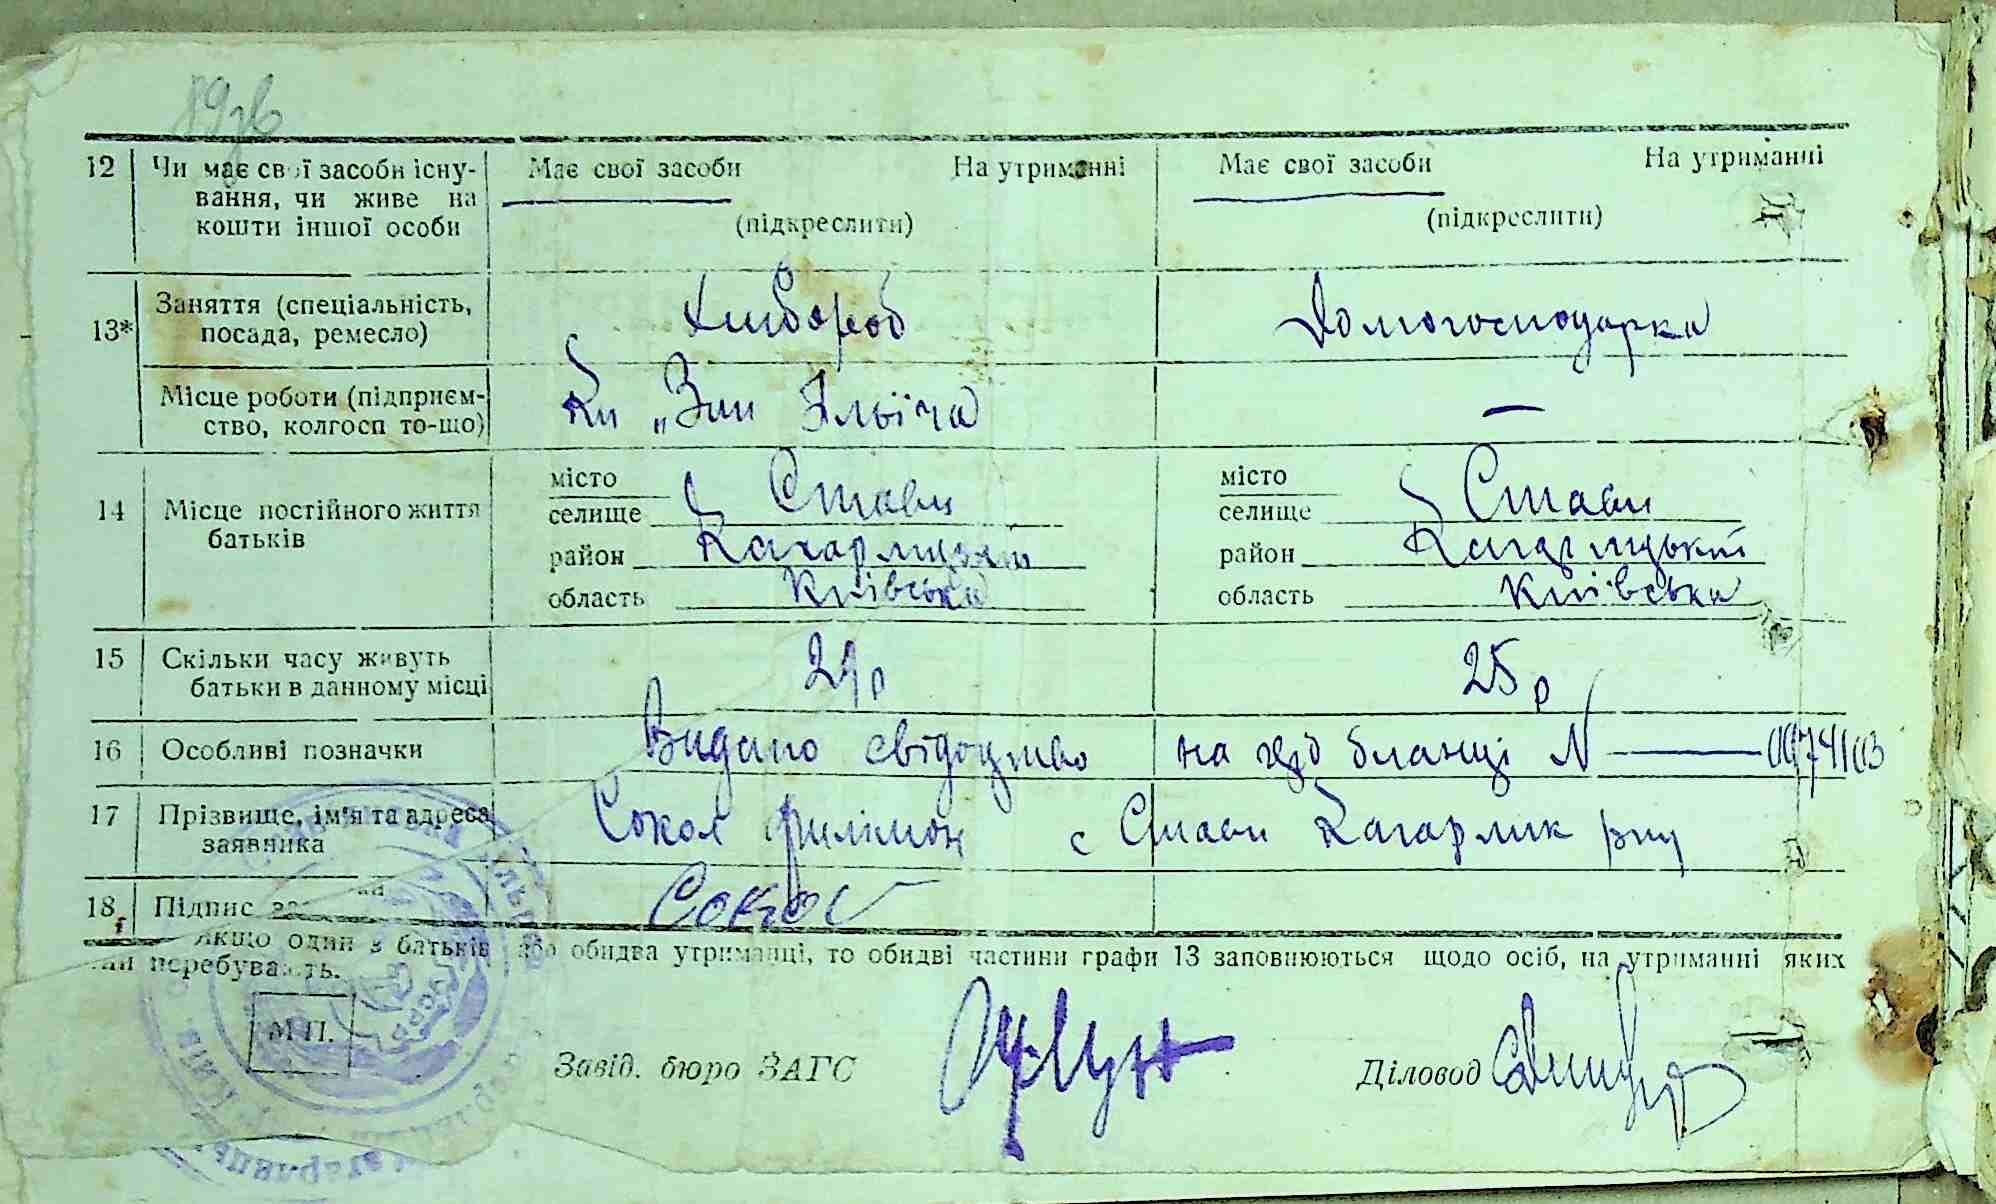 12 Чи має свої засоби існу- Має свої засоби На утриманні Має свої засоби На утриманні
вання, чи живе на
кошти іншої особи (підкреслити) (підкреслити)
13* Заняття (спеціальність, Хлібороб Домогосподарка
посада, ремесло)
Місце роботи (підприєм- Кп „Зип Ілліча —
ство, колгосп то-що)
14 Місце постійного життя місто місто
батьків селище с Стави селище с Стави
район Кагарлицький район Кагарлицький
область Київська область Київська
15 Скільки часу живуть 29 р 25 р
батьки в данному місці
16 Особливі позначки Видано свідоцтво на цід бланці N — 0974103
17 Прізвище, ім'я та адреса Сокол Филімон с Стави Кагарлик рну
заявника
18 Підпис Сокол
Якщо один з батьків або обидва утриманці, то обидві частини графи 13 заповнюються щодо осіб, на утриманні яких
перебувають.
М П.
Завід. бюро ЗАГС Діловод